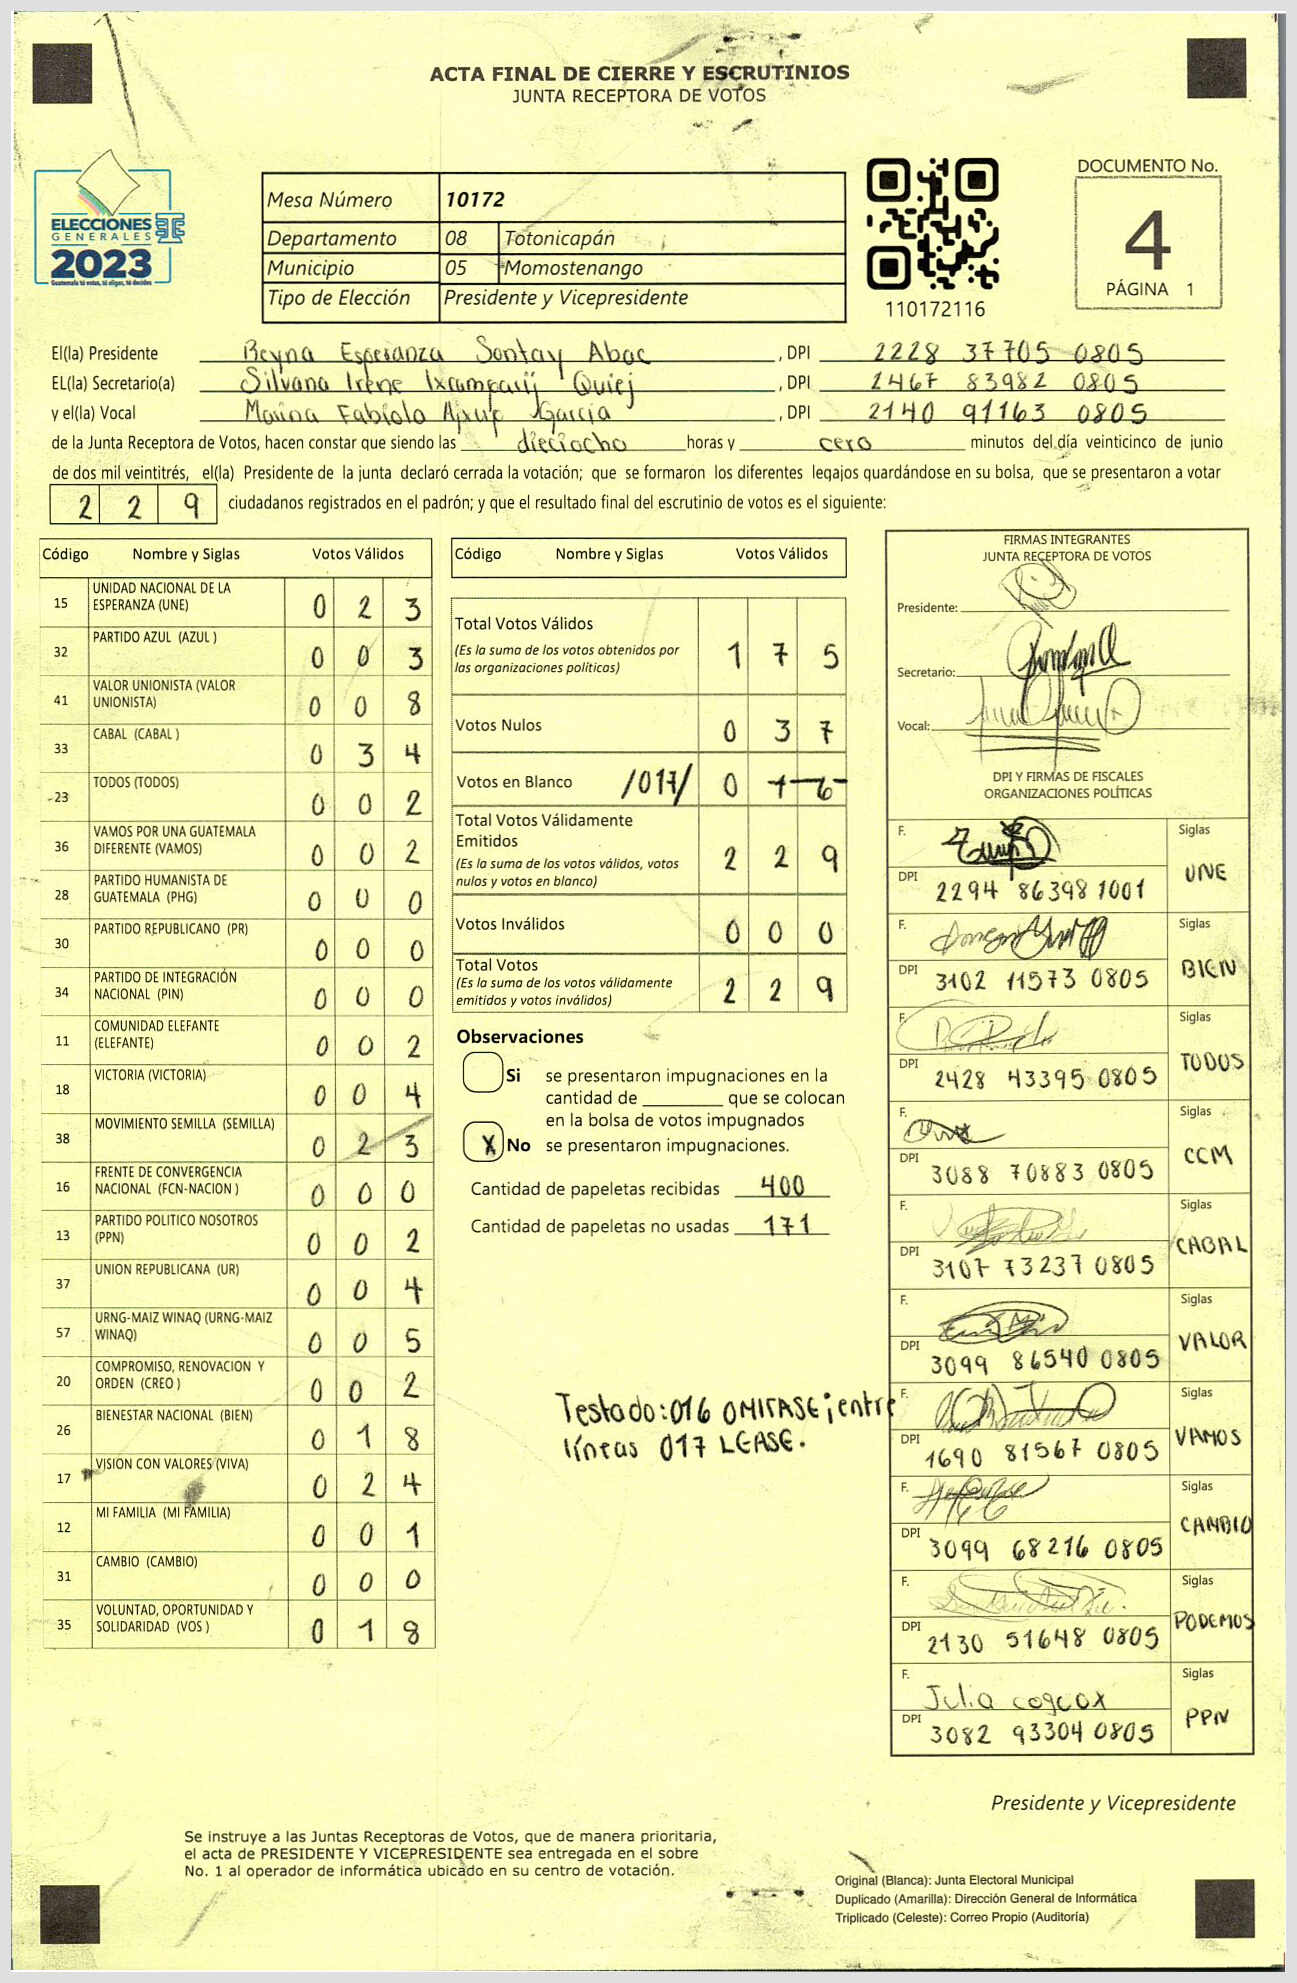 ACTA FINAL DE CIERRE Y ESCRUTINIOS
JUNTA RECEPTORA DE VOTOS
ELECCIONES
GENERALES
2023
Guatemala tú votas, tú eliges, tú decides
Mesa Número 10172
Departamento 08 Totonicapán
Municipio 05 Momostenango
Tipo de Elección Presidente y Vicepresidente
110172116
DOCUMENTO No.
4
PÁGINA 1
El(la) Presidente Reyna Esperanza Sontay Abac , DPI 2228 37705 0805
EL(la) Secretario(a) Silvana Irene Ixcamparij Quiej , DPI 2467 83982 0805
y el(la) Vocal Marina Fabiola Ajxup Garcia , DPI 2140 91163 0805
de la Junta Receptora de Votos, hacen constar que siendo las dieciocho horas y cero minutos del día veinticinco de junio
de dos mil veintitrés, el(la) Presidente de la junta declaró cerrada la votación; que se formaron los diferentes legajos quardándose en su bolsa, que se presentaron a votar
2 2 9 ciudadanos registrados en el padrón; y que el resultado final del escrutinio de votos es el siguiente:
Código Nombre y Siglas Votos Válidos
15 UNIDAD NACIONAL DE LA ESPERANZA (UNE) 0 2 3
32 PARTIDO AZUL (AZUL ) 0 0 3
41 VALOR UNIONISTA (VALOR UNIONISTA) 0 0 8
33 CABAL (CABAL ) 0 3 4
23 TODOS (TODOS) 0 0 2
36 VAMOS POR UNA GUATEMALA DIFERENTE (VAMOS) 0 0 2
28 PARTIDO HUMANISTA DE GUATEMALA (PHG) 0 0 0
30 PARTIDO REPUBLICANO (PR) 0 0 0
34 PARTIDO DE INTEGRACIÓN NACIONAL (PIN) 0 0 0
11 COMUNIDAD ELEFANTE (ELEFANTE) 0 0 2
18 VICTORIA (VICTORIA) 0 0 4
38 MOVIMIENTO SEMILLA (SEMILLA) 0 2 3
16 FRENTE DE CONVERGENCIA NACIONAL (FCN-NACION ) 0 0 0
13 PARTIDO POLITICO NOSOTROS (PPN) 0 0 2
37 UNION REPUBLICANA (UR) 0 0 4
57 URNG-MAIZ WINAQ (URNG-MAIZ WINAQ) 0 0 5
20 COMPROMISO, RENOVACION Y ORDEN (CREO ) 0 0 2
26 BIENESTAR NACIONAL (BIEN) 0 1 8
17 VISION CON VALORES (VIVA) 0 2 4
12 MI FAMILIA (MI FAMILIA) 0 0 1
31 CAMBIO (CAMBIO) 0 0 0
35 VOLUNTAD, OPORTUNIDAD Y SOLIDARIDAD (VOS ) 0 1 8
Código Nombre y Siglas Votos Válidos
Total Votos Válidos 1 7 5
(Es la suma de los votos obtenidos por
las organizaciones políticas)
Votos Nulos 0 3 7
Votos en Blanco /017/ 0 1 6
Total Votos Válidamente
Emitidos 2 2 9
(Es la suma de los votos válidos, votos
nulos y votos en blanco)
Votos Inválidos 0 0 0
Total Votos 2 2 9
(Es la suma de los votos válidamente
emitidos y votos inválidos)
Observaciones
Si se presentaron impugnaciones en la
cantidad de ________ que se colocan
en la bolsa de votos impugnados
X No se presentaron impugnaciones.
Cantidad de papeletas recibidas 400
Cantidad de papeletas no usadas 171
Testado: 016 OMITASE; entre
líneas 017 LEASE.
FIRMAS INTEGRANTES
JUNTA RECEPTORA DE VOTOS
Presidente:
Secretario:
Vocal:
DPI Y FIRMAS DE FISCALES
ORGANIZACIONES POLÍTICAS
F. Siglas
DPI 2294 86398 1001 UNE
F. Siglas
DPI 3102 11573 0805 BIEN
F. Siglas
DPI 2428 43395 0805 TODOS
F. Siglas
DPI 3088 70883 0805 CCM
F. Siglas
DPI 3107 73237 0805 CABAL
F. Siglas
DPI 3099 86540 0805 VALOR
F. Siglas
DPI 1690 81567 0805 VAMOS
F. Siglas
DPI 3099 68216 0805 CAMBIO
F. Siglas
DPI 2130 51648 0805 PODEMOS
F. Julia cogcox Siglas
DPI 3082 93304 0805 PPN
Presidente y Vicepresidente
Se instruye a las Juntas Receptoras de Votos, que de manera prioritaria,
el acta de PRESIDENTE Y VICEPRESIDENTE sea entregada en el sobre
No. 1 al operador de informática ubicado en su centro de votación.
Original (Blanca): Junta Electoral Municipal
Duplicado (Amarilla): Dirección General de Informática
Triplicado (Celeste): Correo Propio (Auditoría)